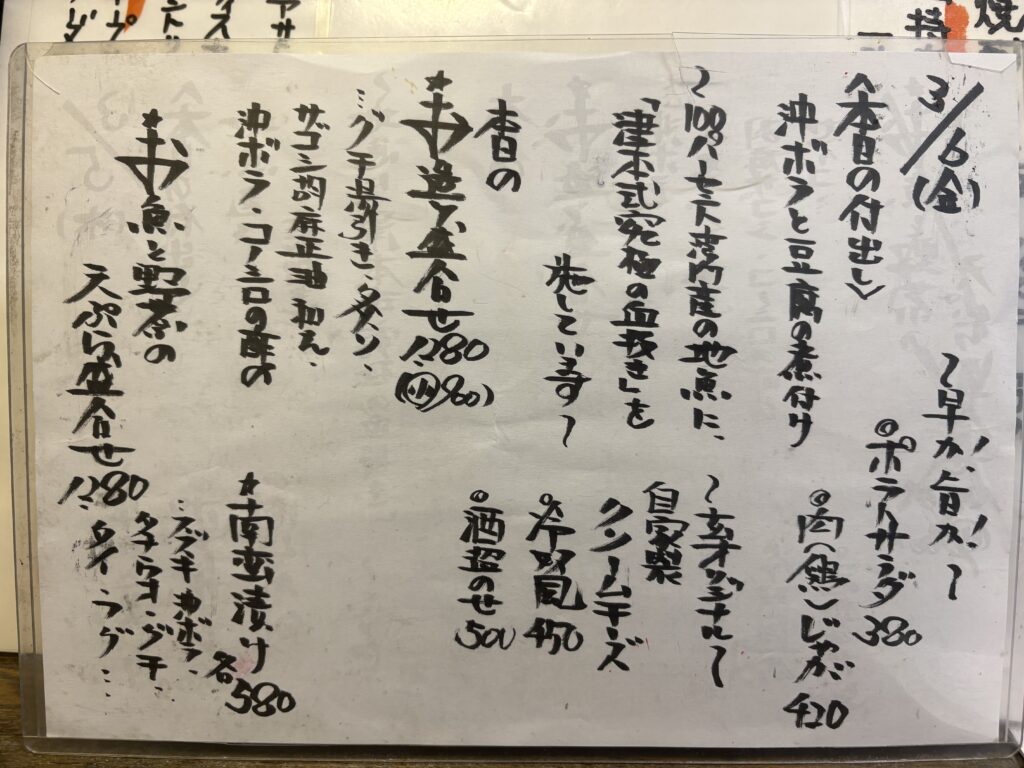 3/6(金)
〈本日の付出し〉
沖ボラと豆腐の煮付け
〜100パーセント湾内産の地魚に、
「津本式究極の血抜き」を
施しています〜
本日の
★お造り盛合せ 1280
(小980)
…グチ湯引き・炙り、
サゴシ胡麻正油和え、
沖ボラ・コノシロの酢の
★お魚と野菜の
天ぷら盛合せ 1280
〜早か、旨か！〜
◎ポテトサラダ 380
◎肉(鶏)じゃが 420
〜玄オリジナル〜
自家製
クリームチーズ
◎冷奴風 450
◎酒盗のせ 500
★南蛮漬け
各580
…スズキ・沖ボラ・
タチウオ・グチ・
タイラギ…